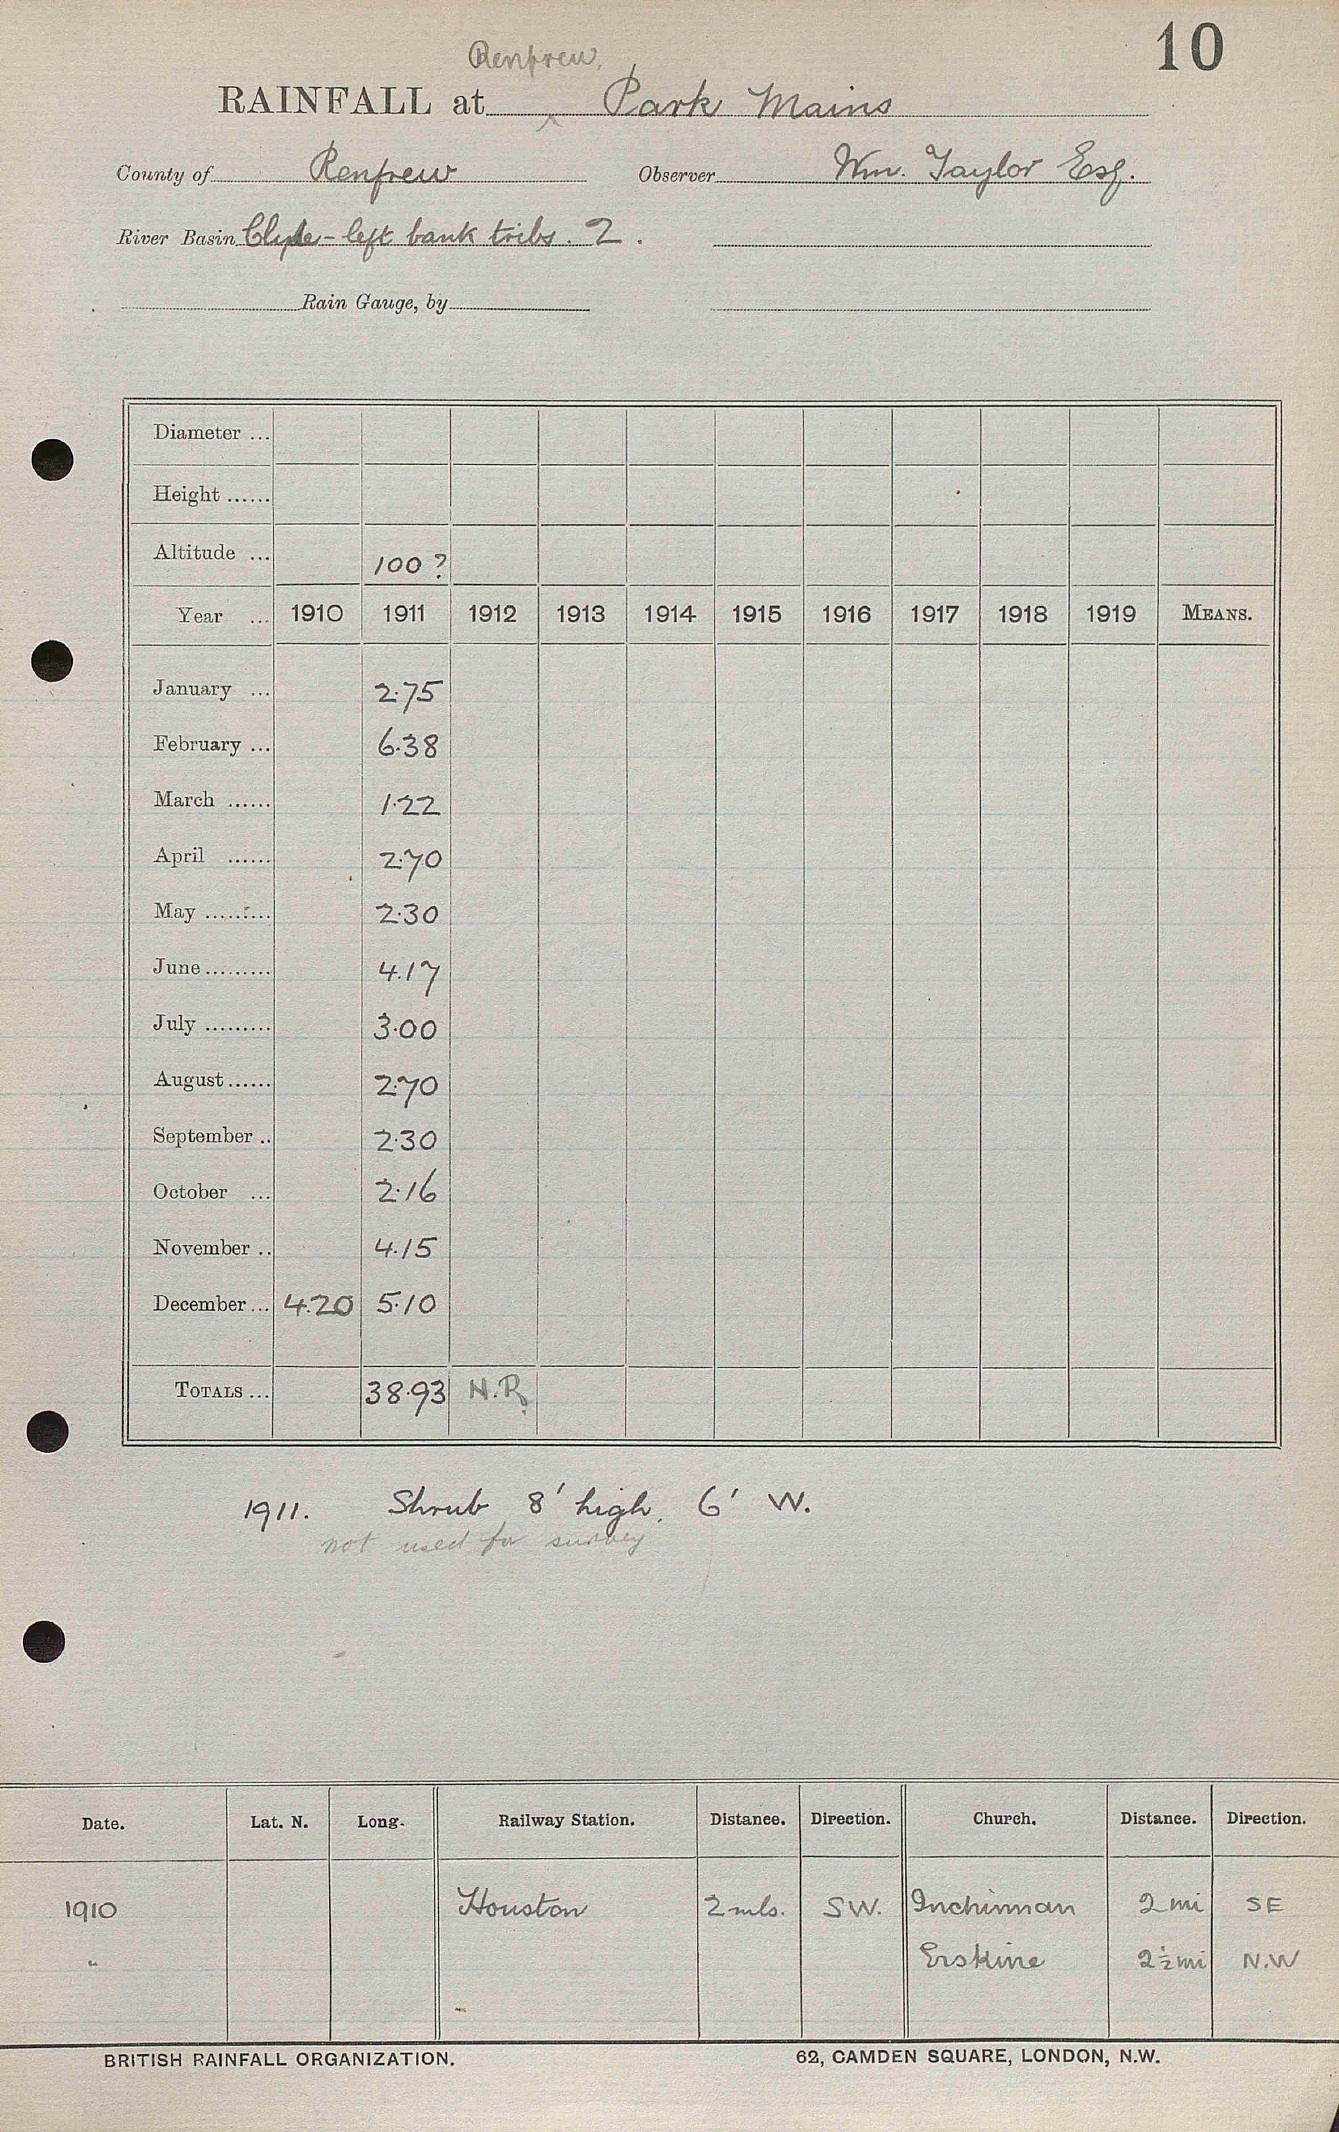 10
Renfrew,
RAINFALL at ^ Park Mains
County of Renfrew Observer Wm. Taylor Esq.
River Basin Clyde - left bank tribs. 2.
Rain Gauge, by
Diameter ...
Height ......
Altitude ... 100?
Year ... 1910 1911 1912 1913 1914 1915 1916 1917 1918 1919 MEANS.
January ... 2.75
February ... 6.38
March ...... 1.22
April ...... 2.70
May ......... 2.30
June ......... 4.17
July ......... 3.00
August ...... 2.70
September .. 2.30
October ... 2.16
November .. 4.15
December ... 4.20 5.10
TOTALS ... 38.93 N.R.
1911. Shrub 8' high, 6' W.
not used for survey
Date. Lat. N. Long. Railway Station. Distance. Direction. Church. Distance. Direction.
1910 Houston 2 mls. SW. Inchinnan 2 mi SE
" Erskine 2½ mi N.W
BRITISH RAINFALL ORGANIZATION. 62, CAMDEN SQUARE, LONDON, N.W.